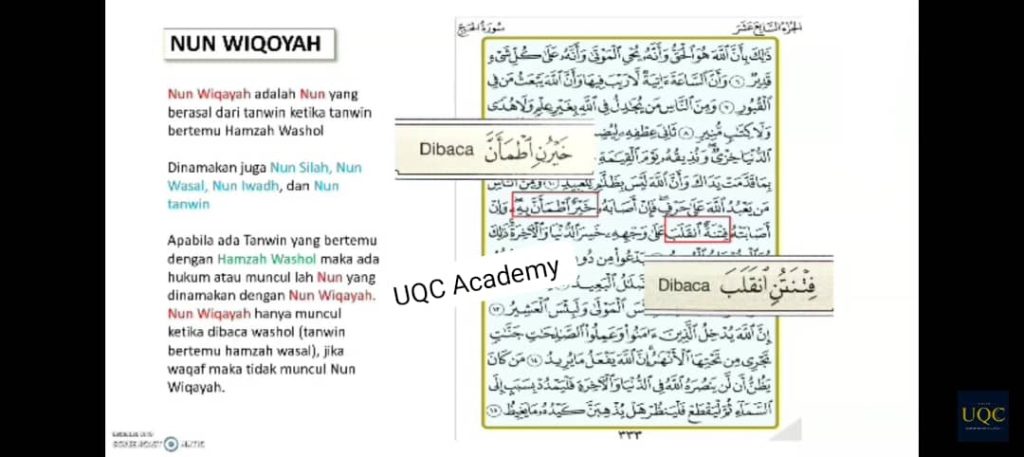 NUN WIQOYAH
Nun Wiqayah adalah Nun yang
berasal dari tanwin ketika tanwin
bertemu Hamzah Washol
Dinamakan juga Nun Silah, Nun
Wasal, Nun Iwadh, dan Nun
tanwin
Apabila ada Tanwin yang bertemu
dengan Hamzah Washol maka ada
hukum atau muncul lah Nun yang
dinamakan dengan Nun Wiqayah.
Nun Wiqayah hanya muncul
ketika dibaca washol (tanwin
bertemu hamzah wasal), jika
waqaf maka tidak muncul Nun
Wiqayah.
الجزء السابع عشر
سورة الحج
ذَٰلِكَ بِأَنَّ ٱللَّهَ هُوَ ٱلْحَقُّ وَأَنَّهُۥ يُحْىِ ٱلْمَوْتَىٰ وَأَنَّهُۥ عَلَىٰ كُلِّ شَىْءٍ
قَدِيرٌ ٦ وَأَنَّ ٱلسَّاعَةَ ءَاتِيَةٌ لَّا رَيْبَ فِيهَا وَأَنَّ ٱللَّهَ يَبْعَثُ مَن فِى
ٱلْقُبُورِ ٧ وَمِنَ ٱلنَّاسِ مَن يُجَٰدِلُ فِى ٱللَّهِ بِغَيْرِ عِلْمٍ وَلَا هُدًى
وَلَا كِتَٰبٍ مُّنِيرٍ ٨ ثَانِىَ عِطْفِهِۦ
Dibaca خَيْرُنِ ٱطْمَأَنَّ
ٱلدُّنْيَا خِزْىٌ وَنُذِيقُهُۥ يَوْمَ ٱلْقِيَٰمَةِ
بِمَا قَدَّمَتْ يَدَاكَ وَأَنَّ ٱللَّهَ لَيْسَ بِظَلَّٰمٍ لِّلْعَبِيدِ ١٠ وَمِنَ ٱلنَّاسِ
مَن يَعْبُدُ ٱللَّهَ عَلَىٰ حَرْفٍ فَإِنْ أَصَابَهُۥ خَيْرٌ ٱطْمَأَنَّ بِهِۦ وَإِنْ
أَصَابَتْهُ فِتْنَةٌ ٱنقَلَبَ عَلَىٰ وَجْهِهِۦ خَسِرَ ٱلدُّنْيَا وَٱلْءَاخِرَةَ ذَٰلِكَ
يَدْعُوا۟ مِن دُو
UQC Academy
Dibaca فِتْنَتُنِ ٱنْقَلَبَ
ٱلضَّلَٰلُ ٱلْبَعِيدُ
ٱلْمَوْلَىٰ وَلَبِئْسَ ٱلْعَشِيرُ ١٣
إِنَّ ٱللَّهَ يُدْخِلُ ٱلَّذِينَ ءَامَنُوا۟ وَعَمِلُوا۟ ٱلصَّٰلِحَٰتِ جَنَّٰتٍ
تَجْرِى مِن تَحْتِهَا ٱلْأَنْهَٰرُ إِنَّ ٱللَّهَ يَفْعَلُ مَا يُرِيدُ ١٤ مَن كَانَ
يَظُنُّ أَن لَّن يَنصُرَهُ ٱللَّهُ فِى ٱلدُّنْيَا وَٱلْءَاخِرَةِ فَلْيَمْدُدْ بِسَبَبٍ إِلَى
ٱلسَّمَآءِ ثُمَّ لْيَقْطَعْ فَلْيَنظُرْ هَلْ يُذْهِبَنَّ كَيْدُهُۥ مَا يَغِيظُ ١٥
٣٣٣
UQC